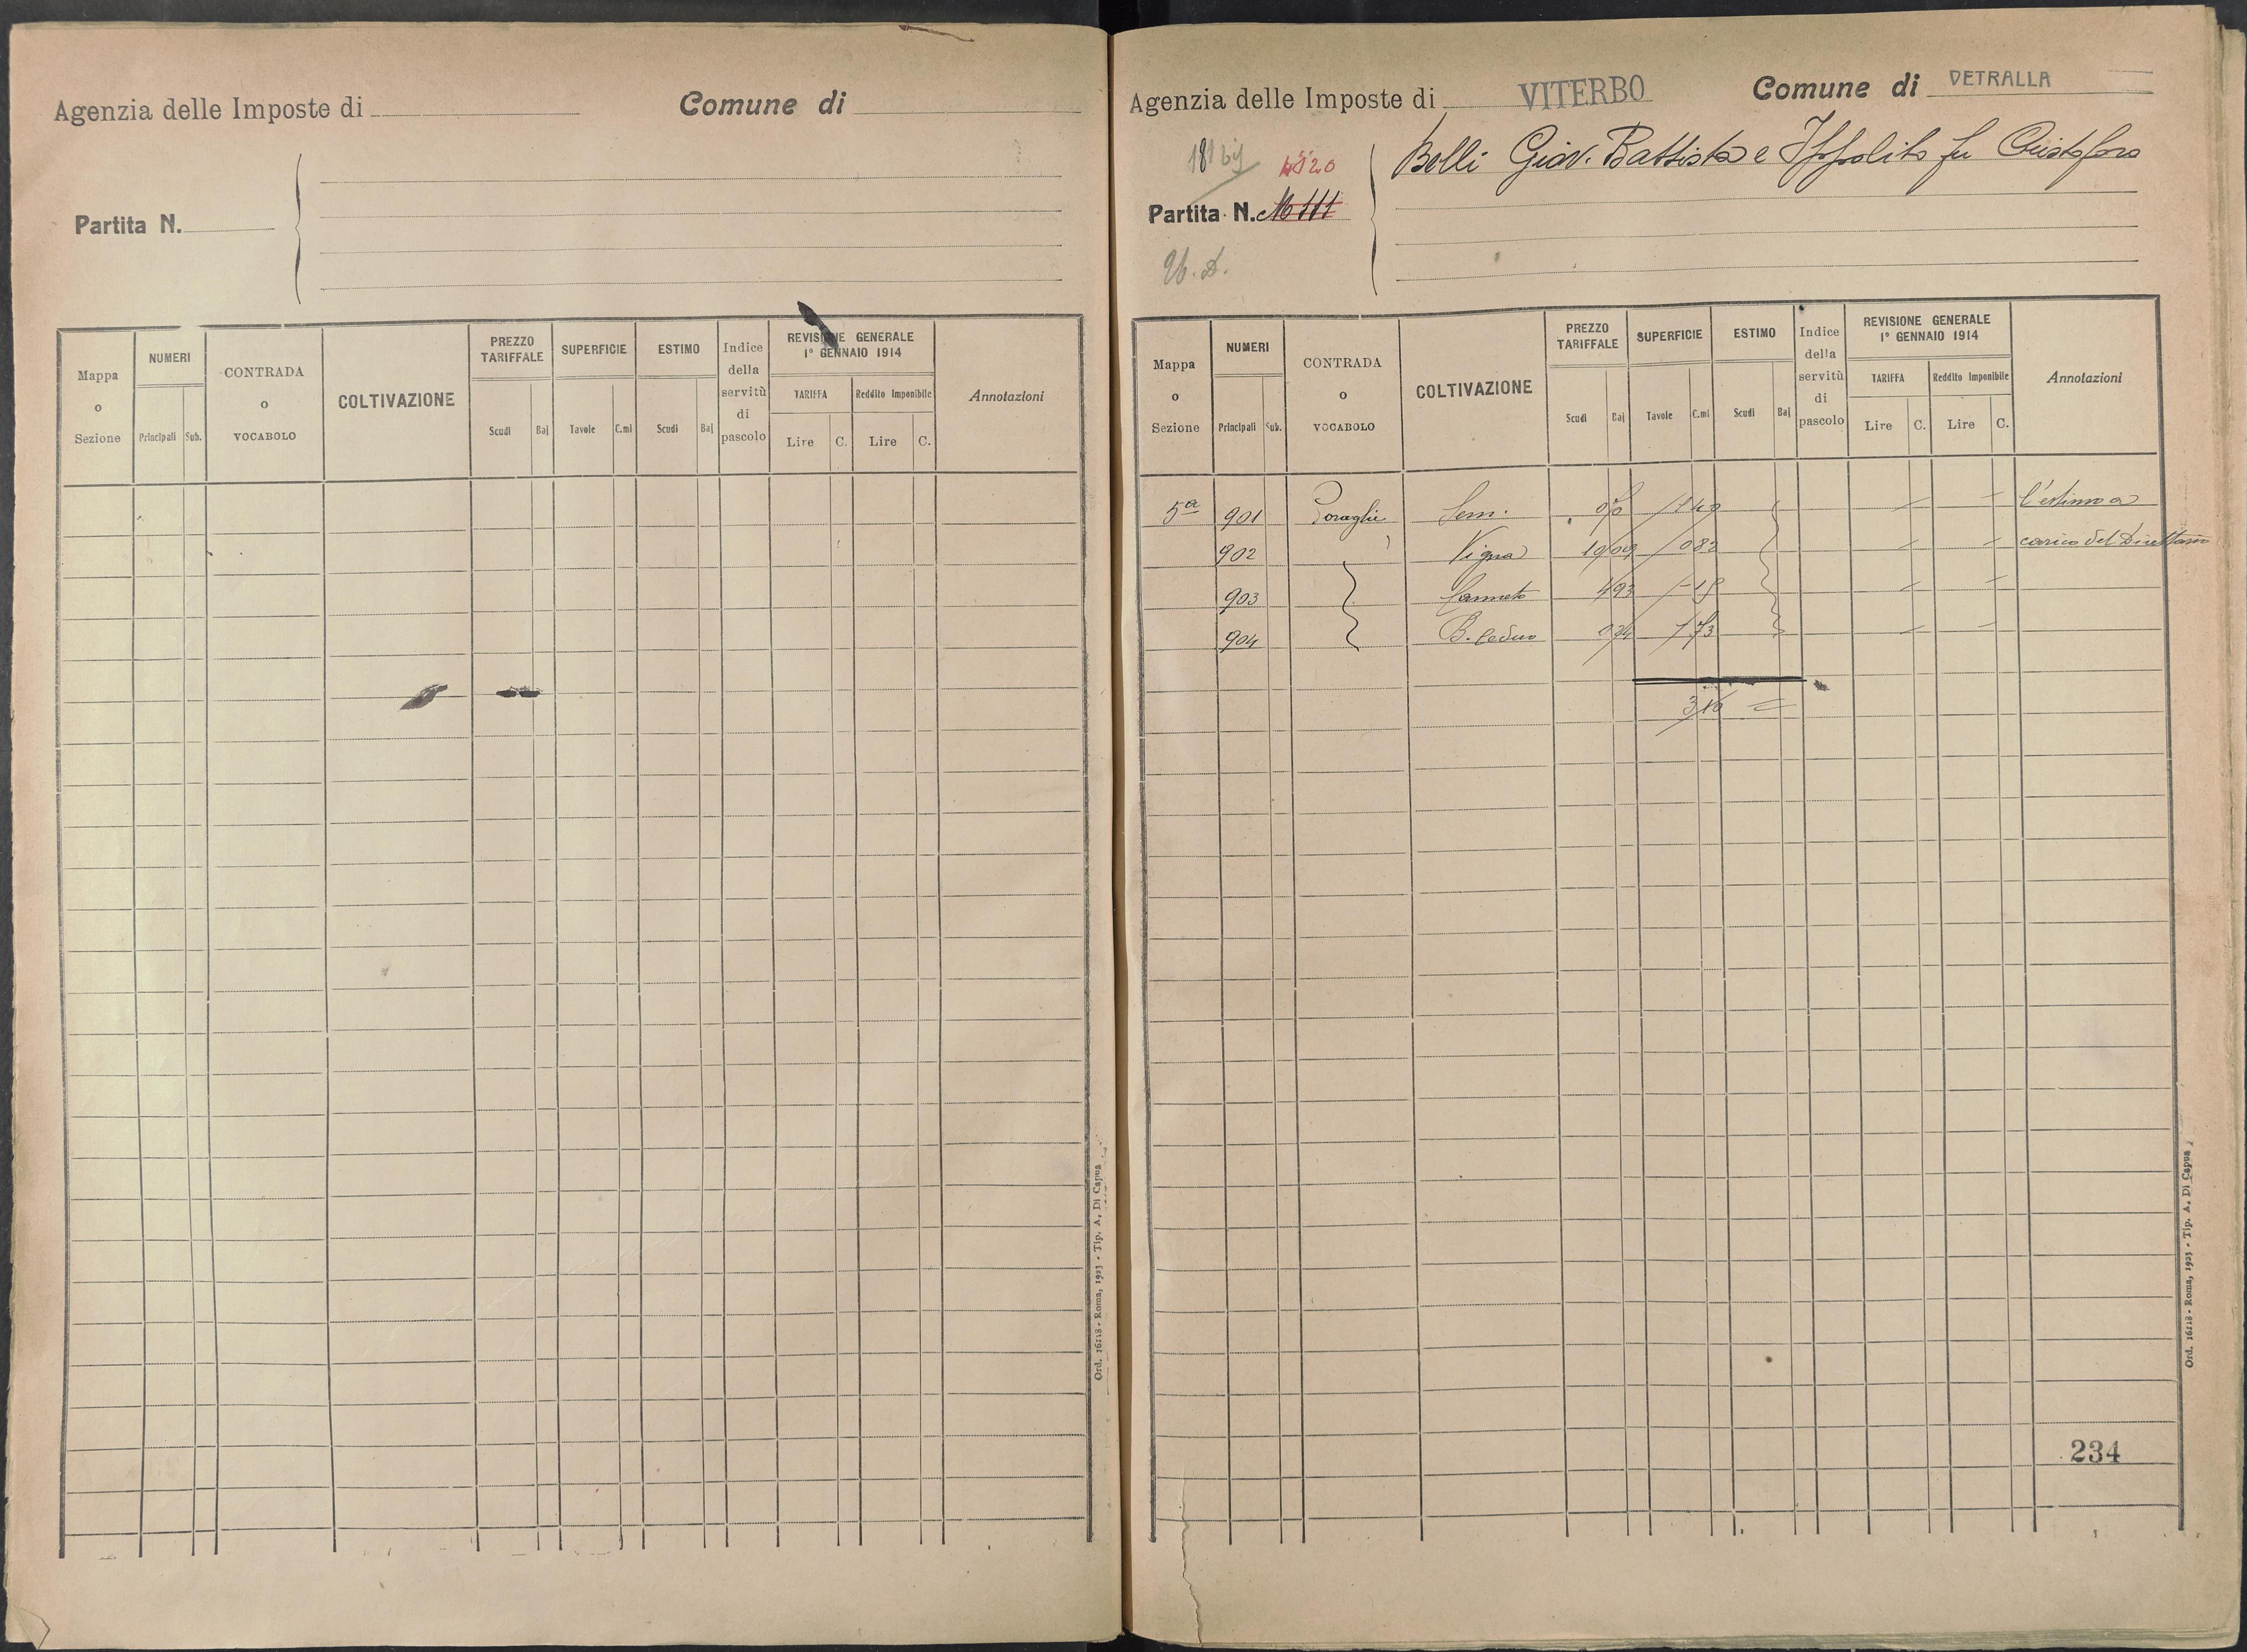 Agenzia delle Imposte di
Comune di
Partita N.
Mappa o Sezione
NUMERI
Principali
Sub.
CONTRADA o VOCABOLO
COLTIVAZIONE
PREZZO TARIFFALE
Scudi
Baj
SUPERFICIE
Tavole
C.mi
ESTIMO
Scudi
Baj
Indice della servitù di pascolo
REVISIONE GENERALE
1° GENNAIO 1914
TARIFFA
Lire
C.
Reddito Imponibile
Lire
C.
Annotazioni
Ord. 16118 - Roma, 1923 - Tip. A. Di Capua
Agenzia delle Imposte di VITERBO
Comune di VETRALLA
4520
Partita N.
Belli Giov. Battista e Ippolito fu Cristoforo
Mappa o Sezione
NUMERI
Principali
Sub.
CONTRADA o VOCABOLO
COLTIVAZIONE
PREZZO TARIFFALE
Scudi
Baj
SUPERFICIE
Tavole
C.mi
ESTIMO
Scudi
Baj
Indice della servitù di pascolo
REVISIONE GENERALE
1° GENNAIO 1914
TARIFFA
Lire
C.
Reddito Imponibile
Lire
C.
Annotazioni
5a 901 Sem. 1 40 l'estimo a
902 Vigna 10 09 0 82 carico del Direttario
903 Canneto 4 93 - 15
904 B. Ceduo 0 34 1 73
3 10 =
234
Ord. 16118 - Roma, 1923 - Tip. A. Di Capua